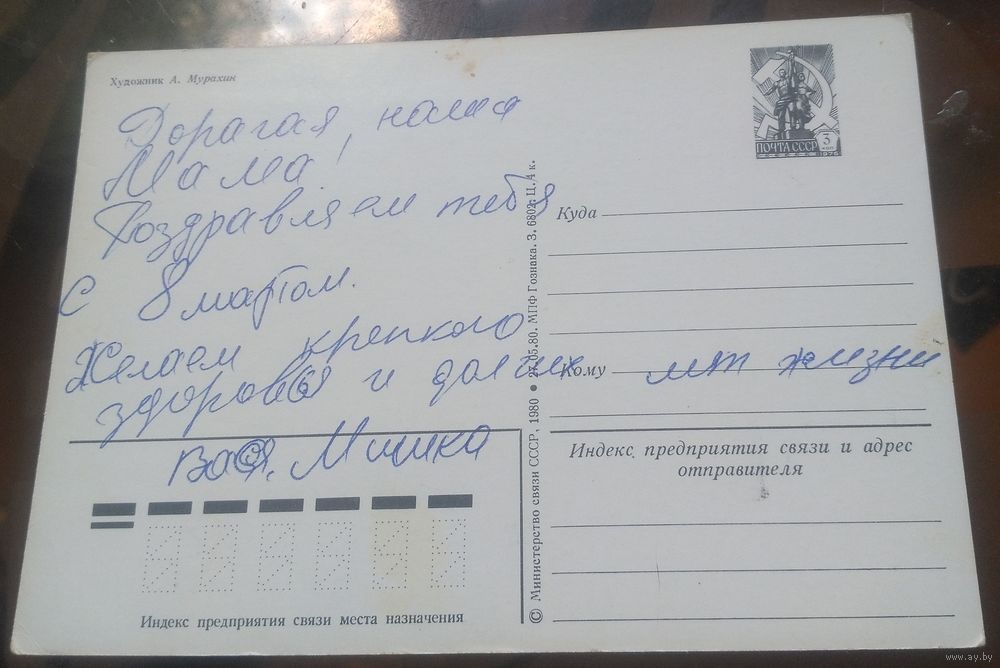 Художник А. Мурахин
Дорагая, наша
Мама!
Поздравляем тебя
с 8 мартом.
Желаем крепкого
здоровья и долгих лет жизни
Вася, Мишка
ПОЧТА СССР
3
КОП
1976
Куда
Кому
Индекс предприятия связи и адрес
отправителя
Индекс предприятия связи места назначения
© Министерство связи СССР, 1980 • 27.05.80. МПФ Гознака. З. 6802. Ц. 4 к.
www.ay.by